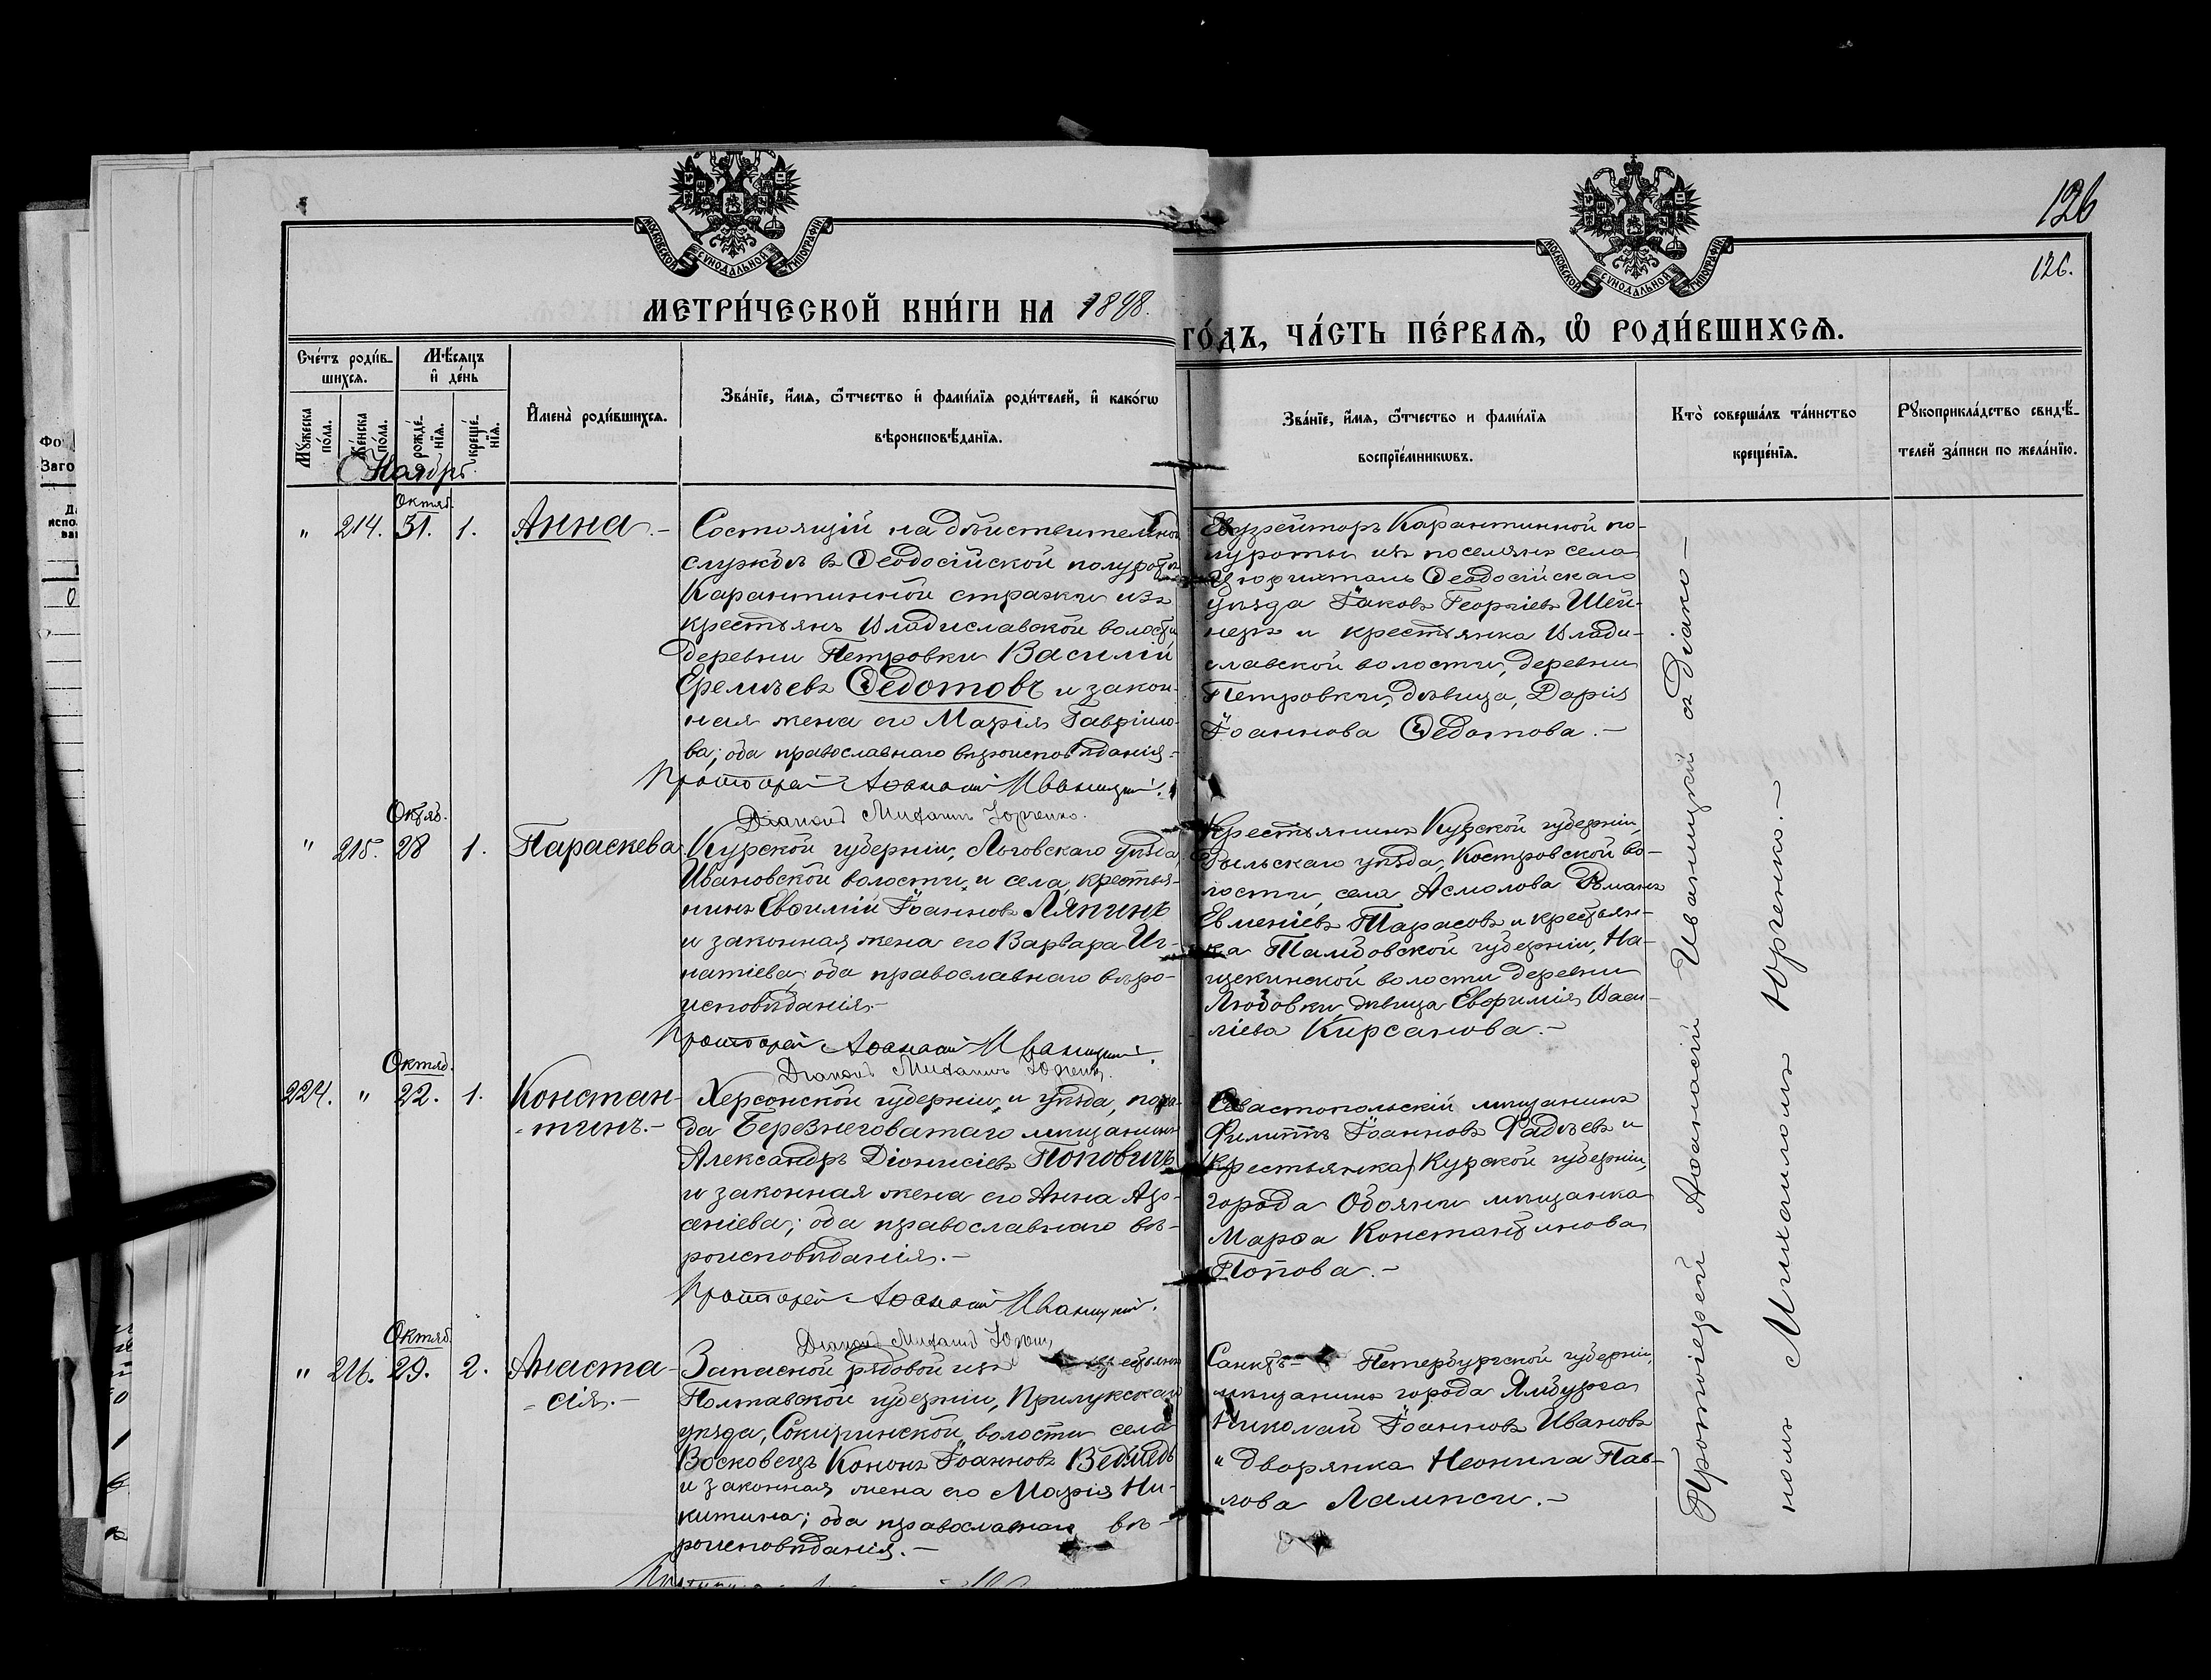 126
126.
МОСКОВСКОЙ СѴНОДАЛЬНОЙ ТИПОГРАФІИ
МОСКОВСКОЙ СѴНОДАЛЬНОЙ ТИПОГРАФІИ
МЕТРИ́ЧЕСКОЙ КНИ́ГИ НА 1898.
ГО́ДЪ, ЧА́СТЬ ПЕ́РВАѦ, Ѿ РОДИ́ВШИХСѦ.
Сче́тъ роди́в-
шихсѧ.
Мꙋ́жеска по́ла.
Же́нска по́ла.
Мѣ́сяцъ
и҆ де́нь
рожде́-
нїѧ.
креще́-
нїѧ.
И҆мена̀ роди́вшихсѧ.
Зва́нїе, и҆́мѧ, ѻ҆́тчество и҆ фами́лїѧ роди́телей, и҆ како́гѡ
вѣроисповѣ́данїѧ.
Зва́нїе, и҆́мѧ, ѻ҆́тчество и фами́лїѧ
воспрїе́мникѡвъ.
Кто̀ соверша́лъ та́инство
креще́нїѧ.
Рꙋкоприкла́дство свидѣ́-
телей за́писи по жела́нїю.
Ноябрь
Октяб.
" 214. 31. 1. Анна.-
Состоящій на дѣйствительной
службѣ въ Ѳеодосійской полуротѣ
Карантинной стражи изъ
крестьянъ Владиславской волости
деревни Петровки Василій
Ѳедотовъ и закон-
ная жена его Марія Гавріило-
ва; оба православнаго вѣроисповѣданія.-
Протоіерей Аѳанасій Иваницкій.
Діаконъ Михаилъ Юрченко.
Ефрейторъ Карантинной по-
луроты изъ поселянъ села
Цюрихталь Ѳеодосійскаго
уѣзда Іаковъ Георгіевъ Шей-
и крестьянка Влади-
славской волости, деревни
Петровки, дѣвица, Дарія
Іоаннова Ѳедотова.-
Октяб.
" 215. 28 1. Параскева
Курской губерніи, Льговскаго уѣзда
Ивановской волости и села, крестья-
нинъ Евѳимій Іоанновъ Ляпинъ
и законная жена его Варвара Иг-
натіева; оба православнаго вѣро-
исповѣданія.-
Протоіерей Аѳанасій Иваницкій.
Діаконъ Михаилъ Юрченко.
Крестьянинъ Курской губерніи,
Рыльскаго уѣзда, Костровской во-
лости, села Асмолова Романъ
Евменіевъ Тарасовъ и крестьян-
ка Тамбовской губерніи, На-
щекинской волости деревни
Любовки, дѣвица Евфимія Васи-
ліева Кирсанова.-
Октяб.
224. " 22. 1. Констан-
-тинъ.-
Херсонской губерніи и уѣзда, поса-
да Березнеговатаго мѣщанинъ
Александръ Діонисіевъ Поповичъ
и законная жена его Анна Ар-
сеніева; оба православнаго вѣ-
роисповѣданія.-
Протоіерей Аѳанасій Иваницкій.
Діаконъ Михаилъ Юрченко
Севастопольскій мѣщанинъ
Филиппъ Іоанновъ Фадѣевъ и
(крестьянка) Курской губерніи,
города Обояни мѣщанка
Марѳа Константинова
Попова.-
Октяб.
" 216. 29. 2. Анаста-
-сія.-
Запасной рядовой изъ
Полтавской губерніи, Прилукскаго
уѣзда, Сокиринской волости села
Восковецъ Кононъ Іоанновъ Ведмедь
и законная жена его Марія Ни-
китина; оба православнаго вѣ-
роисповѣданія.-
Санктъ-Петербургской губерніи,
мѣщанинъ города Ямбурга
Николай Іоанновъ Ивановъ
и дворянка Неонила Пав-
лова Лампси.-
Протоіерей Аѳанасій Иваницкій съ діако-
номъ Михаиломъ Юрченко.-